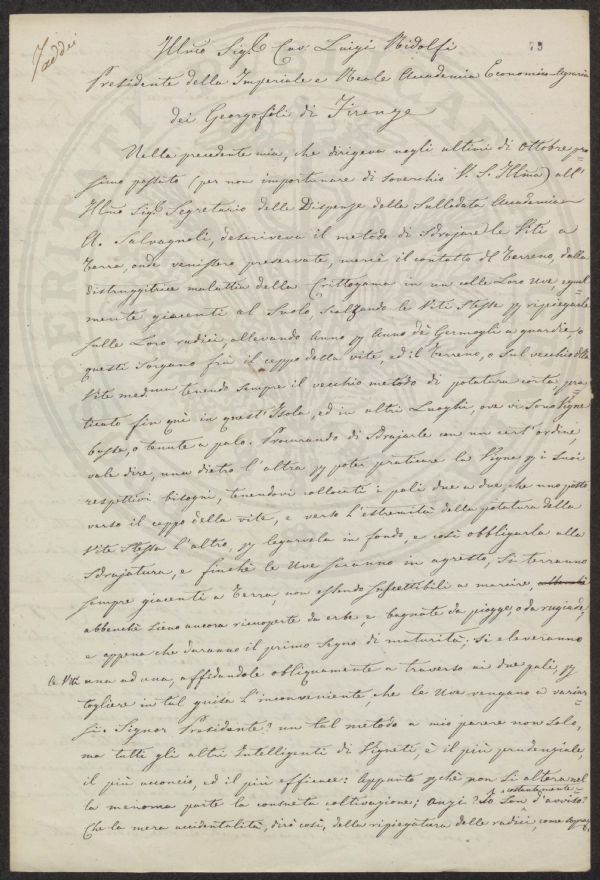 Taddei
75
Illmo Sigr. Cav Luigi Ridolfi
Presidente della Imperiale e Reale Accademia Economico-Agraria
dei Georgofili di Firenze
Nella precedente mia, che dirigeva negli ultimi di Ottobre pros-
simo passato (per non importunare di soverchio V. S. Illma) all'
Illmo Sigr. Segretario delle Dispense della Sullodata Accademia
A. Salvagnoli, descriveva il metodo di Sdrajare le Viti a
Terra, onde venissero preservate, mercè il contatto del Terreno, dalla
distruggitrice malattia della Crittogama in un colle Loro Uve, egual-
mente giacenti al Suolo, scalzando le Viti Stesse p ripiegarle
sulle Loro radici, allevando Anno p Anno de' Germogli a guardie, o
questi Sorgano frà il ceppo della vite, ed il Terreno, o Sul vecchio della
Vite medma tenendo sempre il vecchio metodo di potatura corta pra-
ticato fin quì in quest'Isola, ed in altri Luoghi, ove vi Sono Vigne
basse, o tenute a palo. Procurando di Sdrajarle con un cert'ordine,
vale dire, una dietro l'altra p poter praticare la Vigna p i Suoi
respettivi bisogni, tenendovi collocati i pali due a due che uno posto
verso il ceppo della vite, e verso l'estremità della potatura della
Vite Stessa l'altro, p legarvela in fondo, e così obbligarla alla
Sdrajatura, e finchè le Uve saranno in agresto, Si terranno
sempre giacenti a Terra, non essendo Suscettibili a marcire,
abbenchè sieno ancora ricoperte da erbe e bagnate da piogge, o da rugiade,
e appena che daranno il primo Segno di maturità, Si eleveranno
le Viti una ad una, affidandole obliquamente a traverso ai due pali, p
togliere in tal guisa l'inconveniente, che le Uve vengano a variar-
si. Signor Presidente? un tal metodo a mio parere non solo,
ma tutti gli altri Intelligenti di Vigneti, è il più prudenziale,
il più acconcio, ed il più efficace: Appunto pchè non Si altera nel-
la menoma parte la consueta coltivazione; Anzi? Io Son costantemente d'avviso?
Che la mera accidentalità, dirò così, della ripiegatura delle radici, come sopra